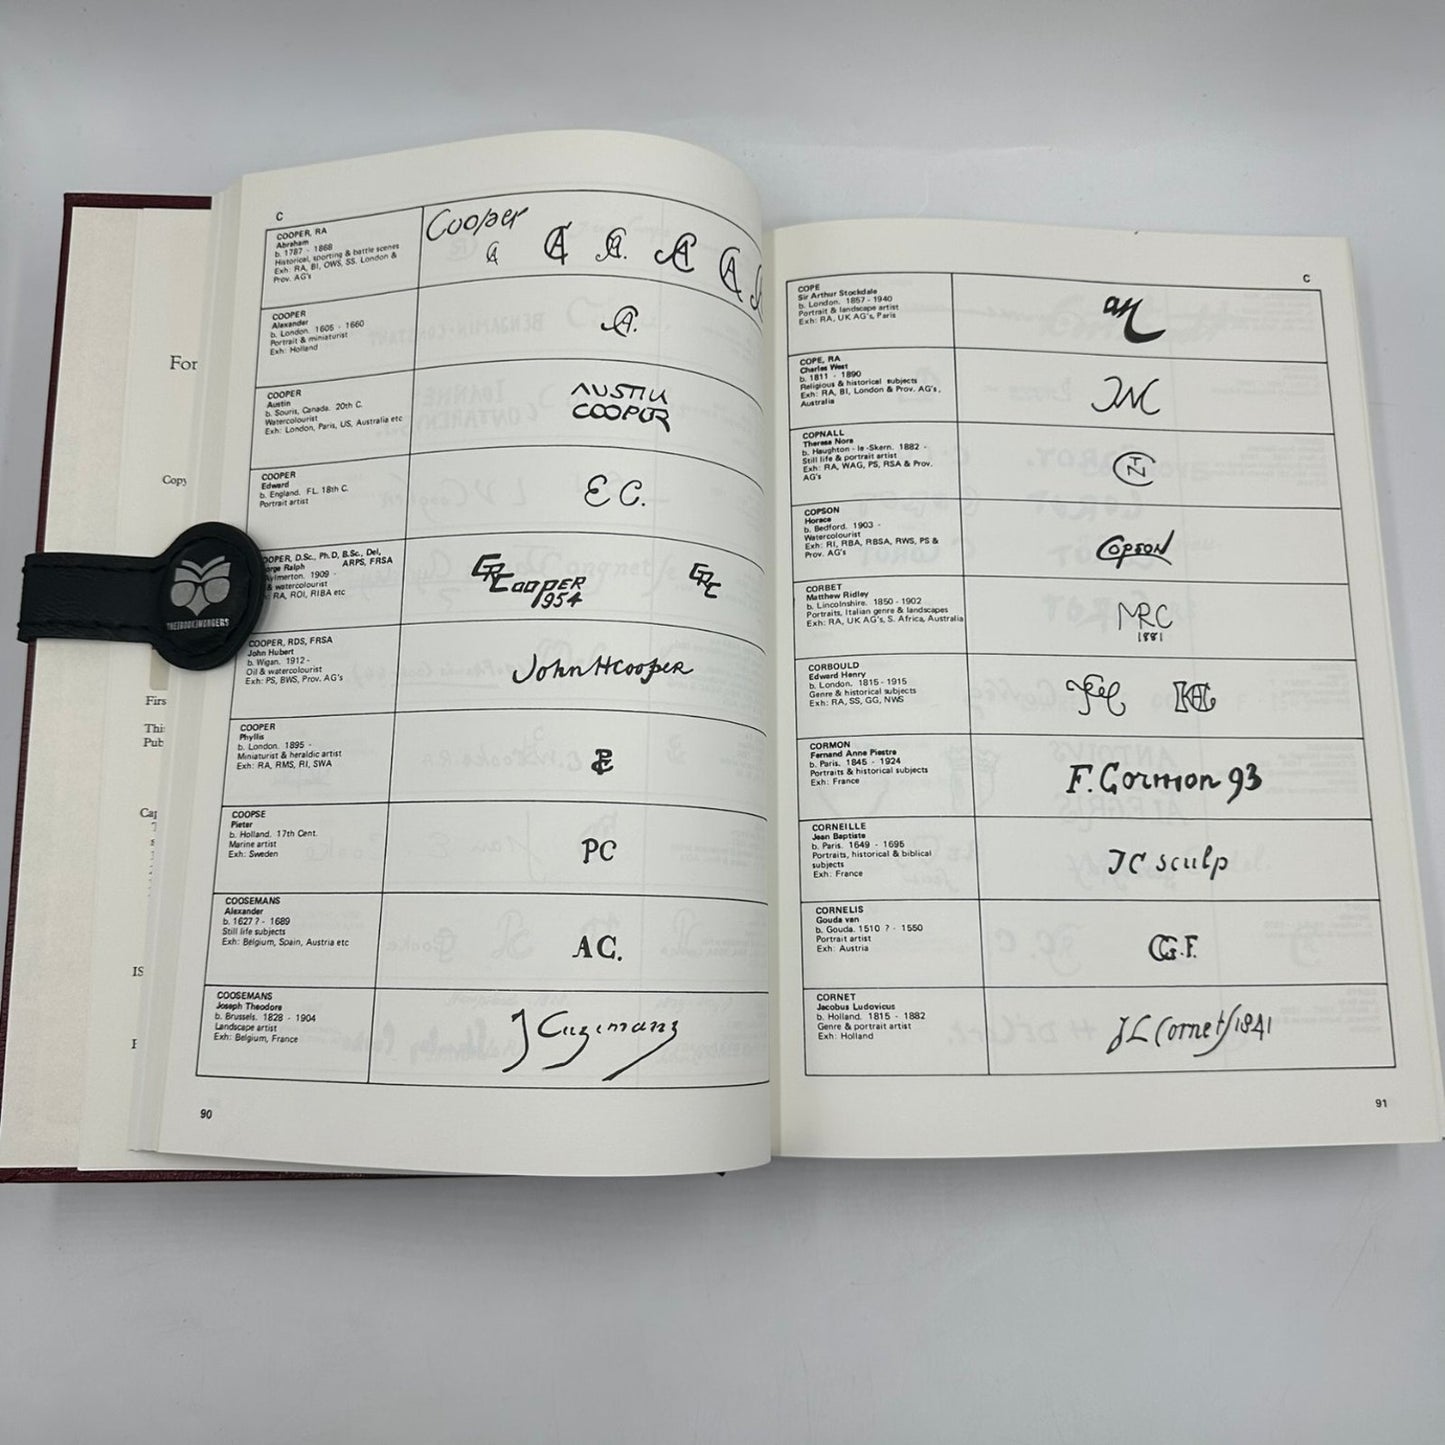 For
Copy
Firs
This
Pub
Cap
IS
THEBOOKEMONGERS
C
COOPER, RA
Abraham
b. 1787 - 1868
Historical, sporting & battle scenes
Exh: RA, BI, OWS, SS. London &
Prov. AG's
Cooper
COOPER
Alexander
b. London. 1605 - 1660
Portrait & miniaturist
Exh: Holland
COOPER
Austin
b. Souris, Canada. 20th C.
Watercolourist
Exh: London, Paris, US, Australia etc
AUSTIN
COOPER
COOPER
Edward
b. England. FL. 18th C.
Portrait artist
E C.
OOPER, D.Sc., Ph.D, B.Sc., Del,
rge Ralph ARPS, FRSA
Aylmerton. 1909 -
& watercolourist
: RA, ROI, RIBA etc
GRCooper
1954
GRC
COOPER, RDS, FRSA
John Hubert
b. Wigan. 1912 -
Oil & watercolourist
Exh: PS, BWS, Prov. AG's
John H Cooper
COOPER
Phyllis
b. London. 1895 -
Miniaturist & heraldic artist
Exh: RA, RMS, RI, SWA
COOPSE
Pieter
b. Holland. 17th Cent.
Marine artist
Exh: Sweden
PC
COOSEMANS
Alexander
b. 1627 ? - 1689
Still life subjects
Exh: Belgium, Spain, Austria etc
AC.
COOSEMANS
Joseph Theodore
b. Brussels. 1828 - 1904
Landscape artist
Exh: Belgium, France
90
C
COPE
Sir Arthur Stockdale
b. London. 1857 - 1940
Portrait & landscape artist
Exh: RA, UK AG's, Paris
COPE, RA
Charles West
b. 1811 - 1890
Religious & historical subjects
Exh: RA, BI, London & Prov. AG's,
Australia
COPNALL
Theresa Nora
b. Haughton - le -Skern. 1882 -
Still life & portrait artist
Exh: RA, WAG, PS, RSA & Prov.
AG's
COPSON
Horace
b. Bedford. 1903 -
Watercolourist
Exh: RI, RBA, RBSA, RWS, PS &
Prov. AG's
COPSON
CORBET
Matthew Ridley
b. Lincolnshire. 1850 - 1902
Portraits, Italian genre & landscapes
Exh: RA, UK AG's, S. Africa, Australia
MRC
1881
CORBOULD
Edward Henry
b. London. 1815 - 1915
Genre & historical subjects
Exh: RA, SS, GG, NWS
CORMON
Fernand Anne Piestre
b. Paris. 1845 - 1924
Portraits & historical subjects
Exh: France
F. Cormon 93
CORNEILLE
Jean Baptiste
b. Paris. 1649 - 1695
Portraits, historical & biblical
subjects
Exh: France
JC sculp
CORNELIS
Gouda van
b. Gouda. 1510 ? - 1550
Portrait artist
Exh: Austria
CG.F.
CORNET
Jacobus Ludovicus
b. Holland. 1815 - 1882
Genre & portrait artist
Exh: Holland
JL Cornet/1841
91